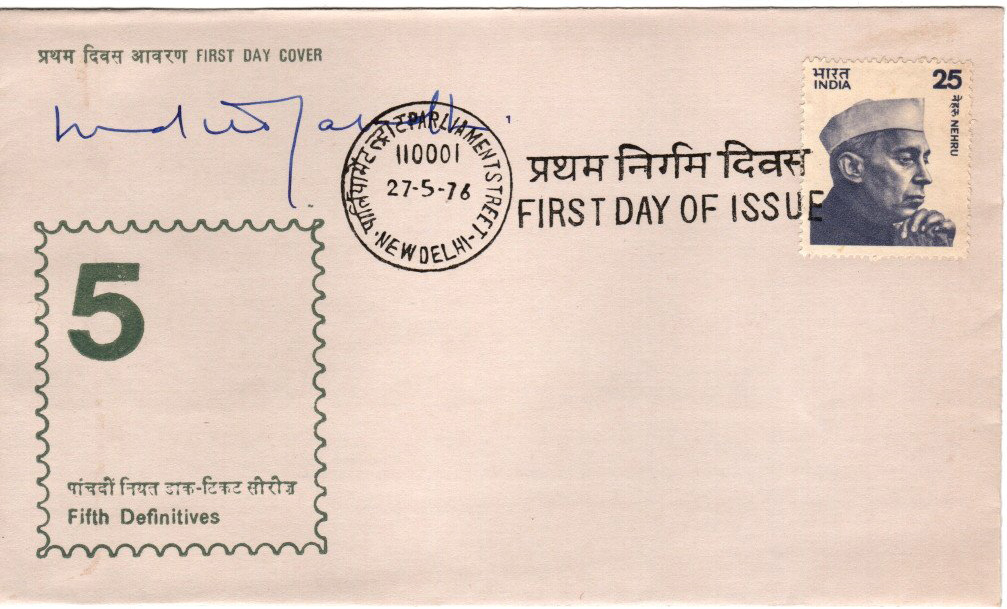 प्रथम दिवस आवरण FIRST DAY COVER
Indira Gandhi
पार्लियामेंट स्ट्रीट PARLIAMENT STREET
110001
27-5-76
NEW DELHI
प्रथम निर्गम दिवस
FIRST DAY OF ISSUE
भारत 25
INDIA
नेहरू NEHRU
5
पांचवीं नियत डाक-टिकट सीरीज़
Fifth Definitives